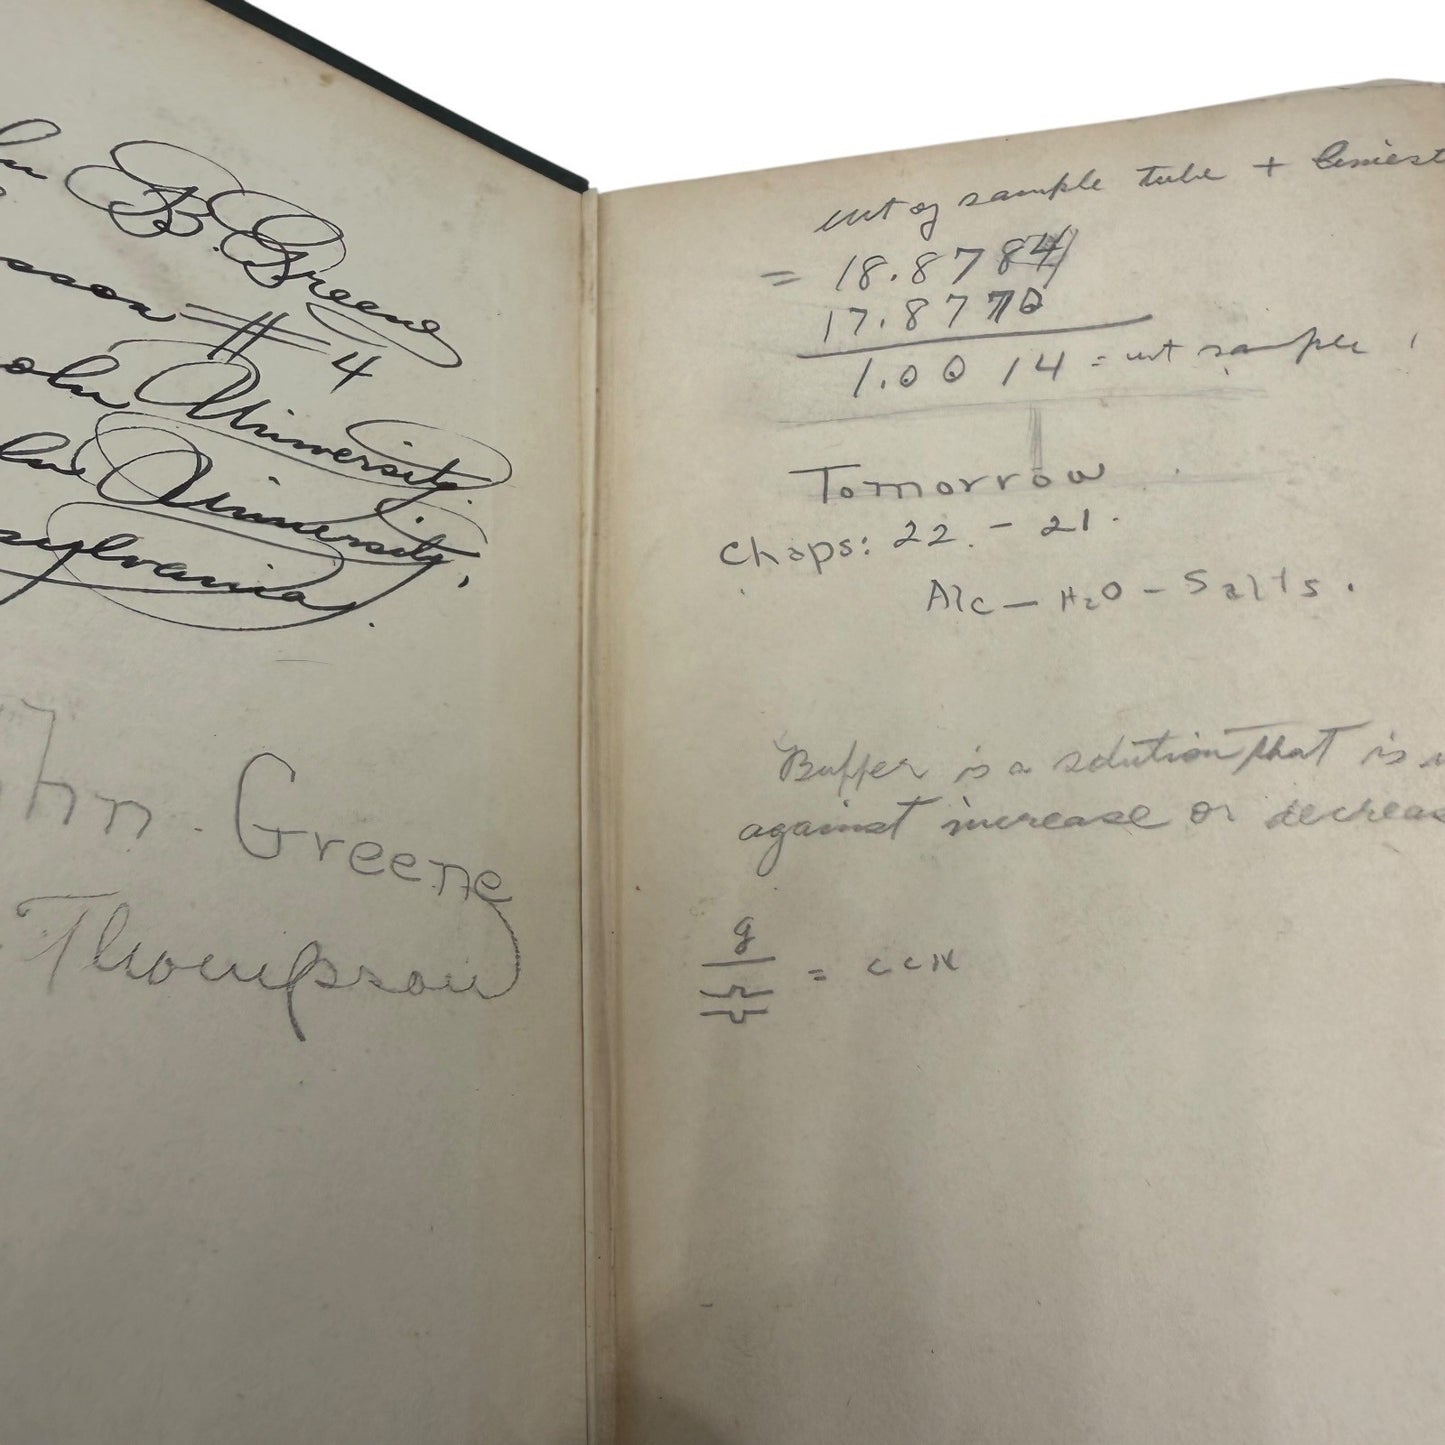 hn B. Greene
sson # 4
oln University.
ln University,
sylvania.
ohn. Greene
Thompson
wt of sample tube +
= 18.8784
17.8770
1.0014 = wt sample
Tomorrow
Chaps: 22. - 21.
Alc - H2O - Salts.
Buffer is a solution that is
against increase or decreas
g
= ccN